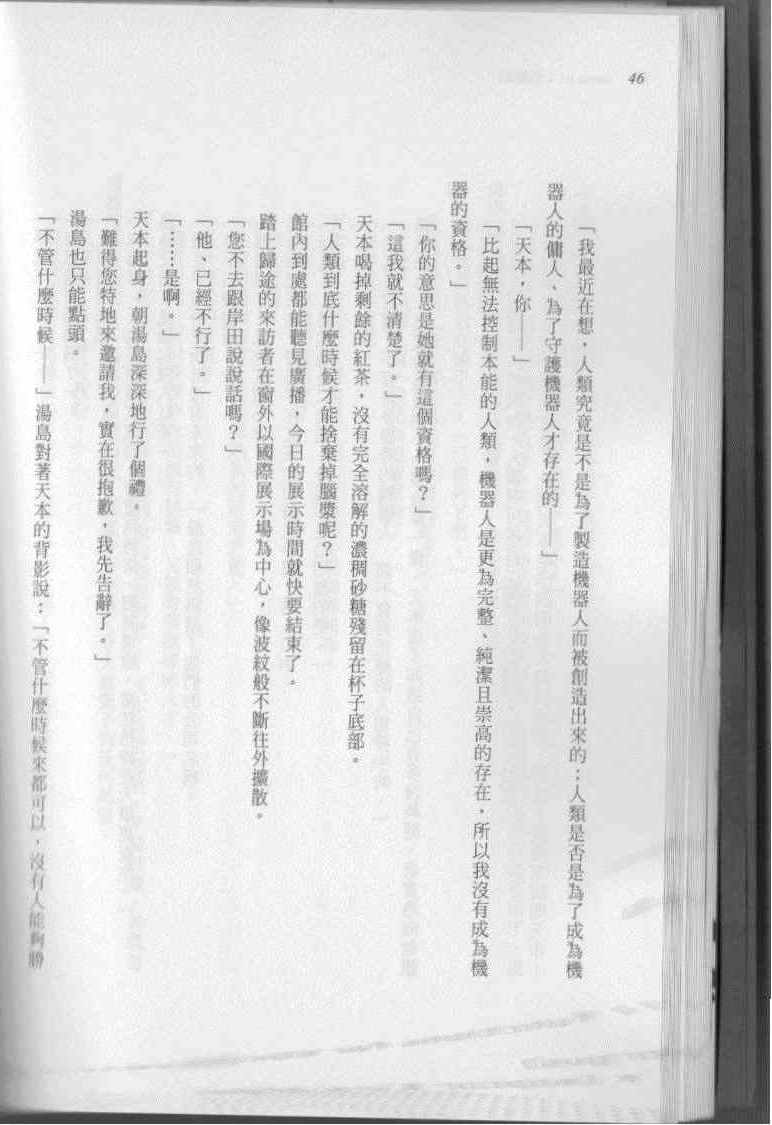 46
「我最近在想，人類究竟是不是為了製造機器人而被創造出來的；人類是否是為了成為機
器人的傭人、為了守護機器人才存在的——」
「天本，你——」
「比起無法控制本能的人類，機器人是更為完整、純潔且崇高的存在，所以我沒有成為機
器的資格。」
「你的意思是她就有這個資格嗎？」
「這我就不清楚了。」
天本喝掉剩餘的紅茶，沒有完全溶解的濃稠砂糖殘留在杯子底部。
「人類到底什麼時候才能捨棄掉腦漿呢？」
館內到處都能聽見廣播，今日的展示時間就快要結束了。
踏上歸途的來訪者在窗外以國際展示場為中心，像波紋般不斷往外擴散。
「您不去跟岸田說說話嗎？」
「他、已經不行了。」
「……是啊。」
天本起身，朝湯島深深地行了個禮。
「難得您特地來邀請我，實在很抱歉，我先告辭了。」
湯島也只能點頭。
「不管什麼時候——」湯島對著天本的背影說：「不管什麼時候來都可以，沒有人能夠勝